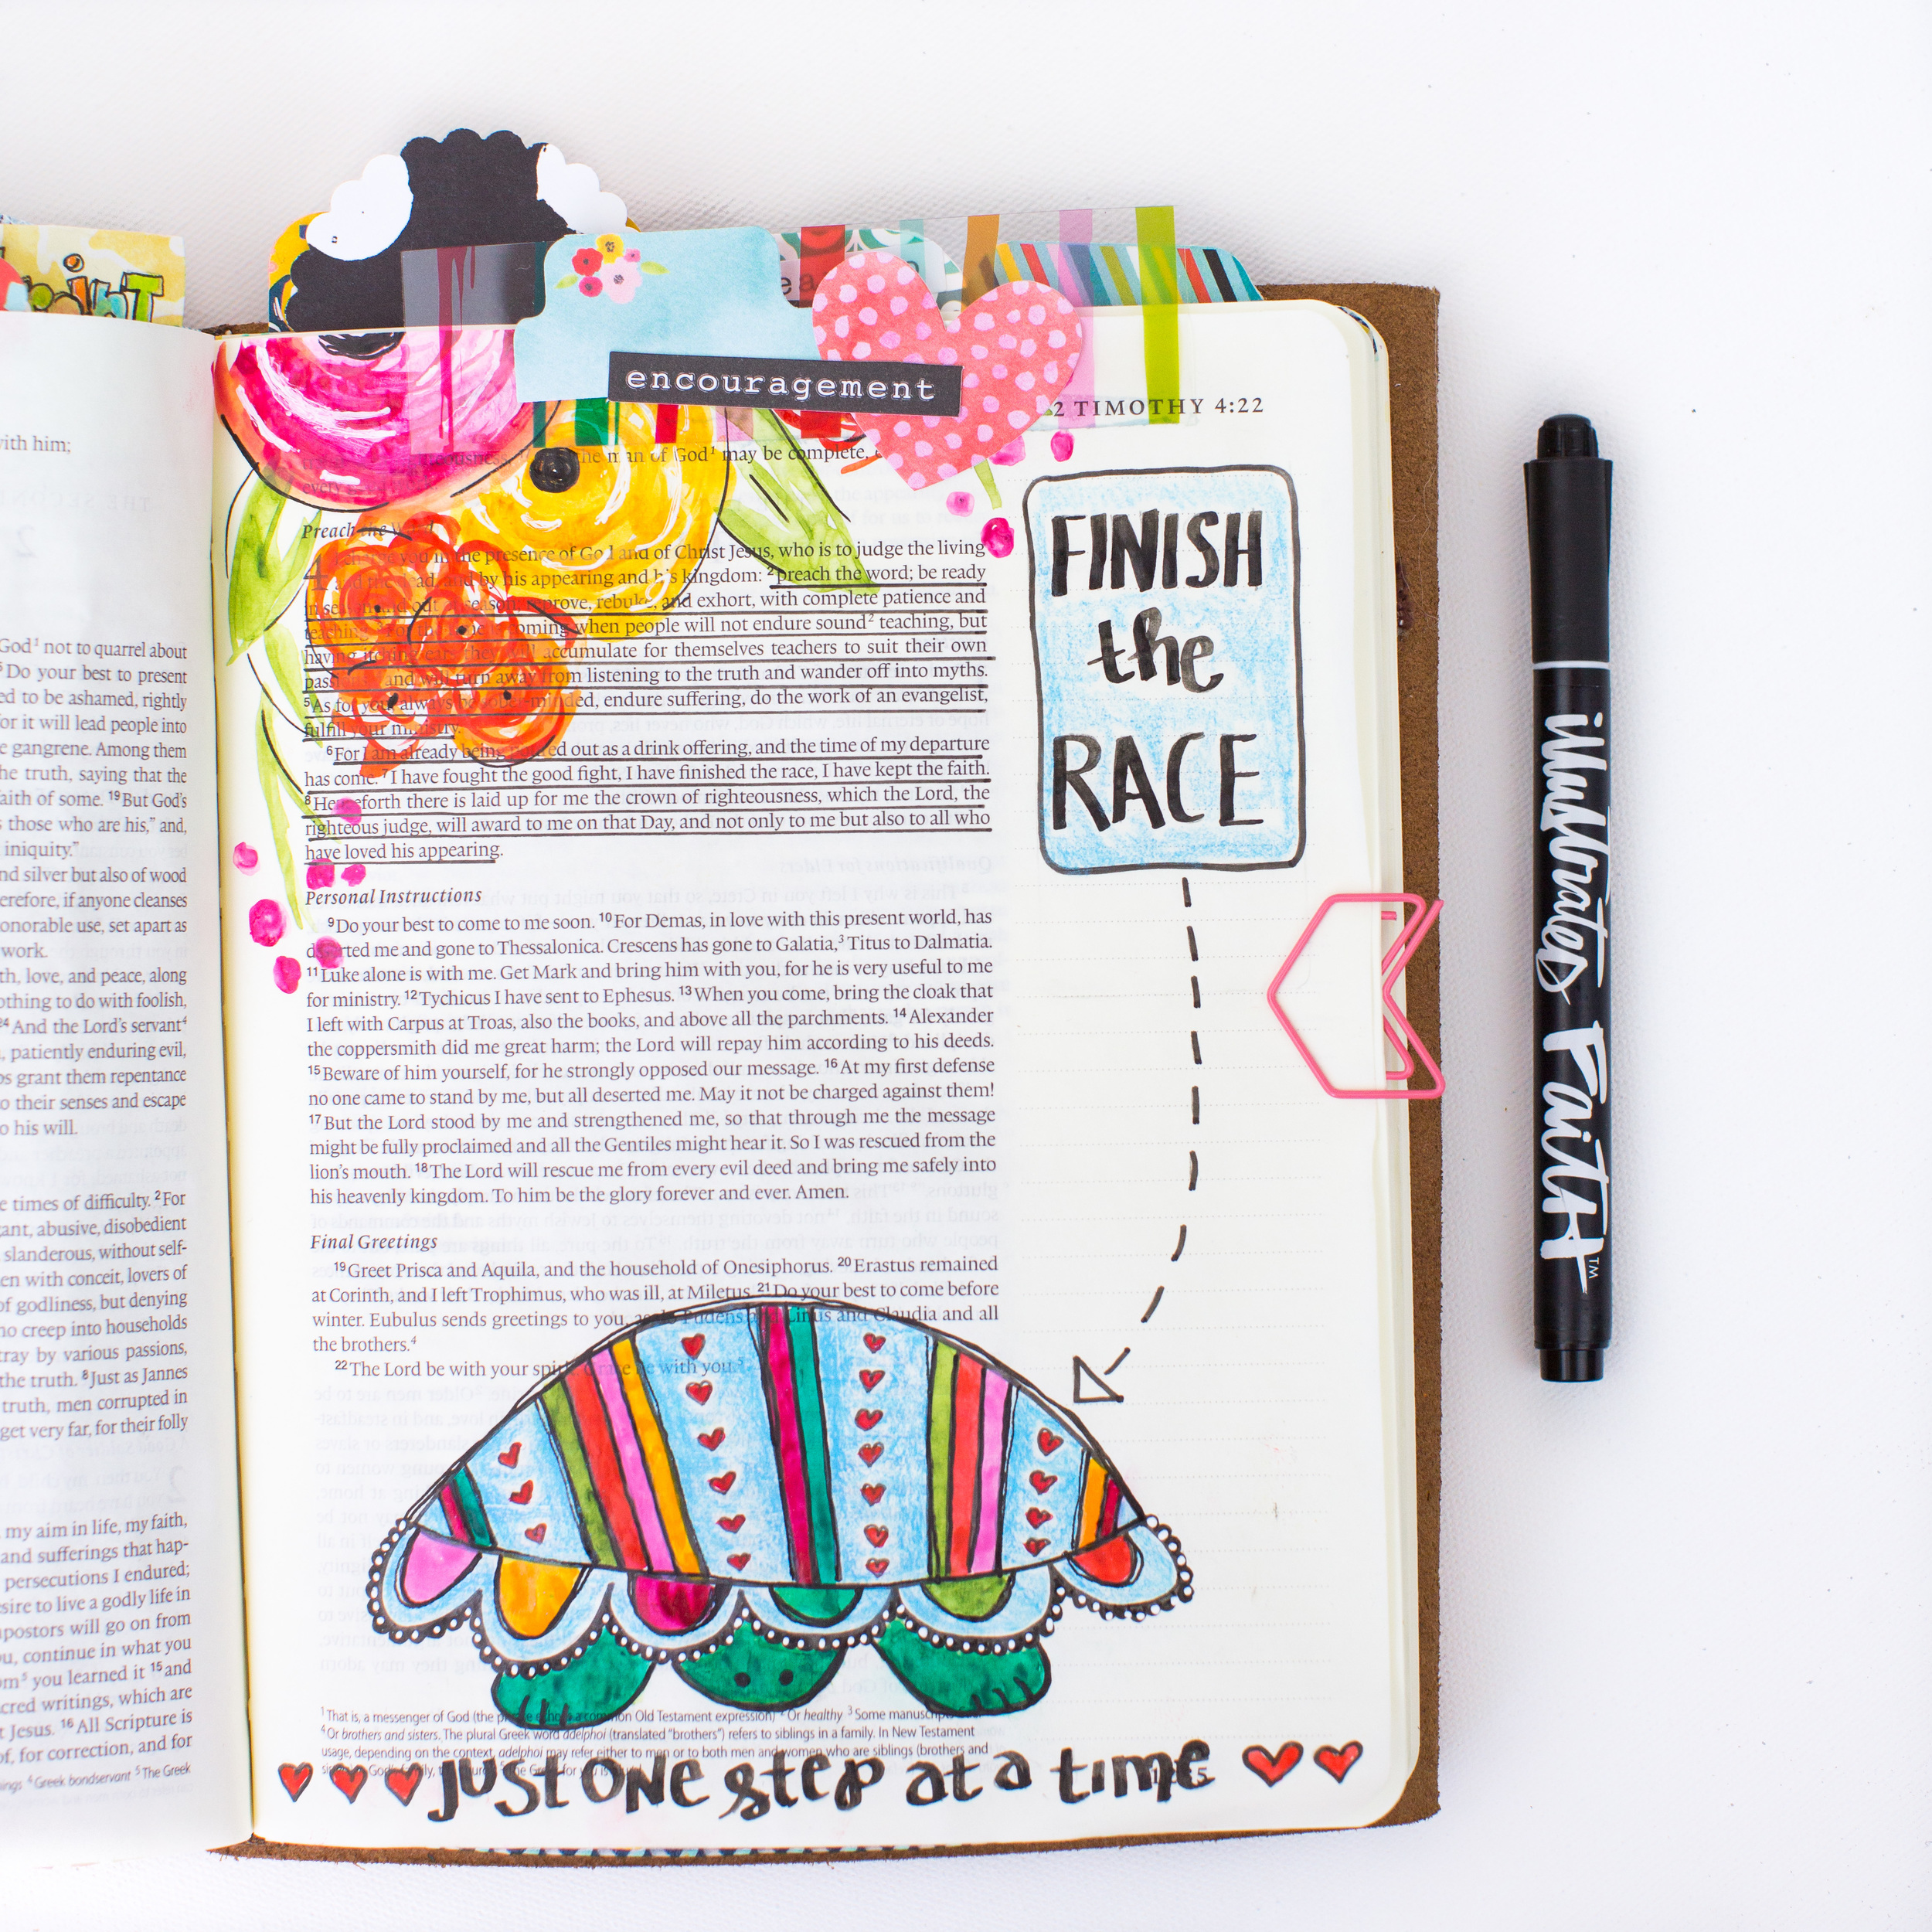 with him;
God¹ not to quarrel about
Do your best to present
ed to be ashamed, rightly
or it will lead people into
e gangrene. Among them
he truth, saying that the
aith of some. ¹⁹But God's
those who are his," and,
iniquity."
nd silver but also of wood
erefore, if anyone cleanses
onorable use, set apart as
work.
th, love, and peace, along
othing to do with foolish,
²⁴And the Lord's servant⁴
, patiently enduring evil,
ps grant them repentance
o their senses and escape
o his will.
e times of difficulty. ²For
ant, abusive, disobedient
slanderous, without self-
en with conceit, lovers of
of godliness, but denying
ho creep into households
tray by various passions,
the truth. ⁸Just as Jannes
truth, men corrupted in
get very far, for their folly
my aim in life, my faith,
and sufferings that hap-
persecutions I endured;
sire to live a godly life in
mpostors will go on from
ou, continue in what you
om⁵ you learned it ¹⁵and
cred writings, which are
t Jesus. ¹⁶All Scripture is
of, for correction, and for
⁴Greek bondservant ⁵The Greek
encouragement
2 TIMOTHY 4:22
the man of God¹ may be complete,
every
Preach the
in the presence of God and of Christ Jesus, who is to judge the living
and by his appearing and his kingdom: ²preach the word; be ready
in season and out of season; reprove, rebuke, and exhort, with complete patience and
teaching. coming when people will not endure sound² teaching, but
having itching ears they will accumulate for themselves teachers to suit their own
passions, and will turn away from listening to the truth and wander off into myths.
⁵As for you, always be sober-minded, endure suffering, do the work of an evangelist,
fulfill your ministry.
⁶For I am already being poured out as a drink offering, and the time of my departure
has come. ⁷I have fought the good fight, I have finished the race, I have kept the faith.
⁸Henceforth there is laid up for me the crown of righteousness, which the Lord, the
righteous judge, will award to me on that Day, and not only to me but also to all who
have loved his appearing.
Personal Instructions
⁹Do your best to come to me soon. ¹⁰For Demas, in love with this present world, has
deserted me and gone to Thessalonica. Crescens has gone to Galatia,³ Titus to Dalmatia.
¹¹Luke alone is with me. Get Mark and bring him with you, for he is very useful to me
for ministry. ¹²Tychicus I have sent to Ephesus. ¹³When you come, bring the cloak that
I left with Carpus at Troas, also the books, and above all the parchments. ¹⁴Alexander
the coppersmith did me great harm; the Lord will repay him according to his deeds.
¹⁵Beware of him yourself, for he strongly opposed our message. ¹⁶At my first defense
no one came to stand by me, but all deserted me. May it not be charged against them!
¹⁷But the Lord stood by me and strengthened me, so that through me the message
might be fully proclaimed and all the Gentiles might hear it. So I was rescued from the
lion's mouth. ¹⁸The Lord will rescue me from every evil deed and bring me safely into
his heavenly kingdom. To him be the glory forever and ever. Amen.
Final Greetings
¹⁹Greet Prisca and Aquila, and the household of Onesiphorus. ²⁰Erastus remained
at Corinth, and I left Trophimus, who was ill, at Miletus. ²¹Do your best to come before
winter. Eubulus sends greetings to you, as do Pudens and Linus and Claudia and all
the brothers.⁴
²²The Lord be with your spirit. Grace be with you.
¹That is, a messenger of God (the phrase echoes a common Old Testament expression) ²Or healthy ³Some manuscripts
⁴Or brothers and sisters. The plural Greek word adelphoi (translated "brothers") refers to siblings in a family. In New Testament
usage, depending on the context, adelphoi may refer either to men or to both men and women who are siblings (brothers and
FINISH
the
RACE
just one step at a time
illustrated FaitH™